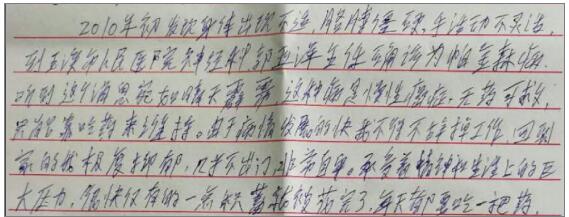 2010年初发现身体出现不适,胳膊僵硬,手活动不灵活,
到五
人民医院神经科郭
主任确诊为帕金森病.
听到这个消息
如晴天霹雳,这种病是慢性癌症,无药可救,
只能靠吃药来维持。由于病情发展的快我不得不辞掉工作,回到
家的我极度抑郁,几乎不出门,非常自卑。承受着精神和生活上的巨
大压力,很快仅有的一点积蓄
花完了,每天都要吃一把药.